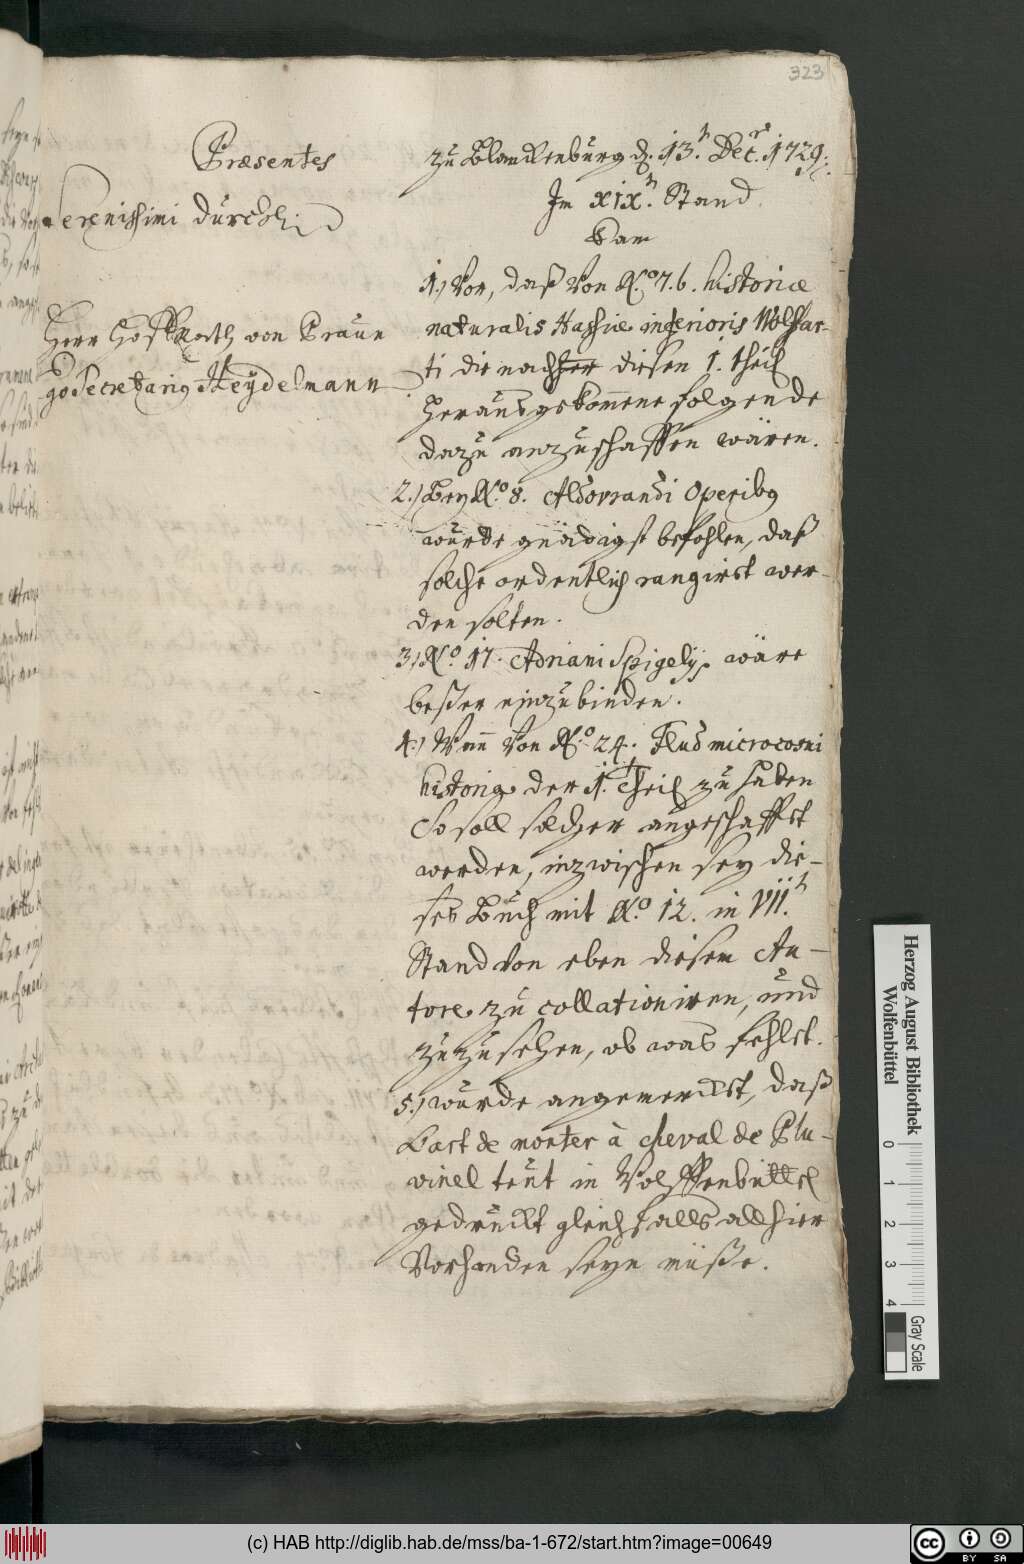 323
Præsentes
Serenissimi Durchl.
Herr Hoffrath von Praun
Secretarius Heydelmann
zu Blanckenburg d. 13.n Decr. 1729.
Im XIX.n Stand
Kam
1.) Vor, daß von No 7. 6. historiæ
naturalis Hassiæ inferioris Wolffar-
ti die nach diesen 1. theil
herausgekommene folgende
dazu anzuschaffen wären.
2.) Bey No 8. Aldovrandi Operibus
wurde gnädigst befohlen, daß
solche ordentlich rangirt wer-
den solten.
3.) No 17. Adriani Spigelij wäre
beßer einzubinden.
4.) Wenn von No 24. Flud microcosmi
historia der 1. Theil zu haben
So soll solcher angeschafft
werden, inzwischen sey die-
ses Buch mit No 12. in VII.n
Stand von eben diesem Au-
tore zu collationiren, und
zuzusehen, ob was fehlet.
5.) wurde angemerckt, daß
L'art de monter à cheval de Plu-
vinel teut in Wolffenbüttel
gedruckt gleichfalls allhier
Vorhanden seyn müße.
Herzog August Bibliothek
Wolfenbüttel
0 1 2 3 4
Gray Scale
(c) HAB http://diglib.hab.de/mss/ba-1-672/start.htm?image=00649
cc BY SA